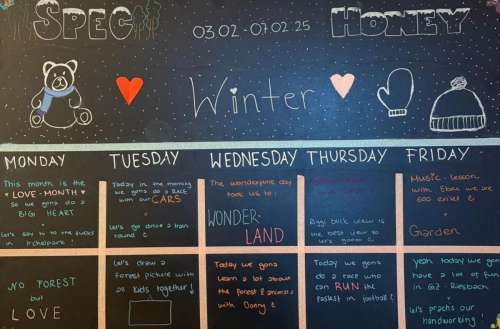 SPEC
HONEY
03.02 - 07.02.25
Winter
MONDAY
TUESDAY
WEDNESDAY
THURSDAY
FRIDAY
This month is the
LOVE - MONTH
so we gonna do a
BIG HEART
Let's say hi to the ducks
in
Today in the morning
we gonna do a RACE
with our CARS
Let's go drive a train
round
The wondertime day
took us to:
WONDER-
LAND
is
the best
Music - lesson
with
Garden
NO FOREST
but
LOVE
Let's draw a
forest picture with
all kids together!
Today we gona
learn a lot about
the forest & animals
with Danny
Today we gona
do a race who
can RUN the
fastest in football
yeah today we gona
have a lot of fun
in GZ - Riesbach
Let's practis our
handworking!